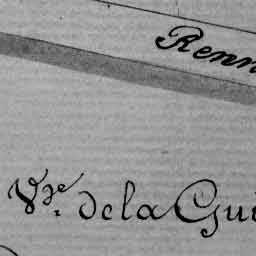 Renn
Vve. de la Gui